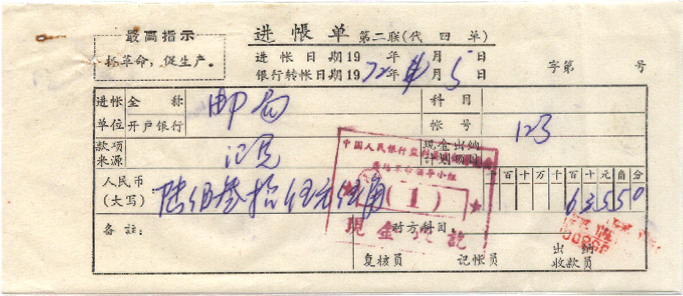 最高指示
抓革命，促生产。
进帐单 第二联(代回单)
进帐日期19 年 月 日
银行转帐日期1972年 月5日
字第 号
进帐 全称 邮局 科目
单位 开户银行 帐号 123
款项
来源
现金出纳
中国人民银行
领导小组
(1)
现金收讫
人民币
(大写) 陆佰叁拾伍元伍角
百十万千百十元角分
63550
备註:
对方科目
复核员 记帐员
出纳
收款员